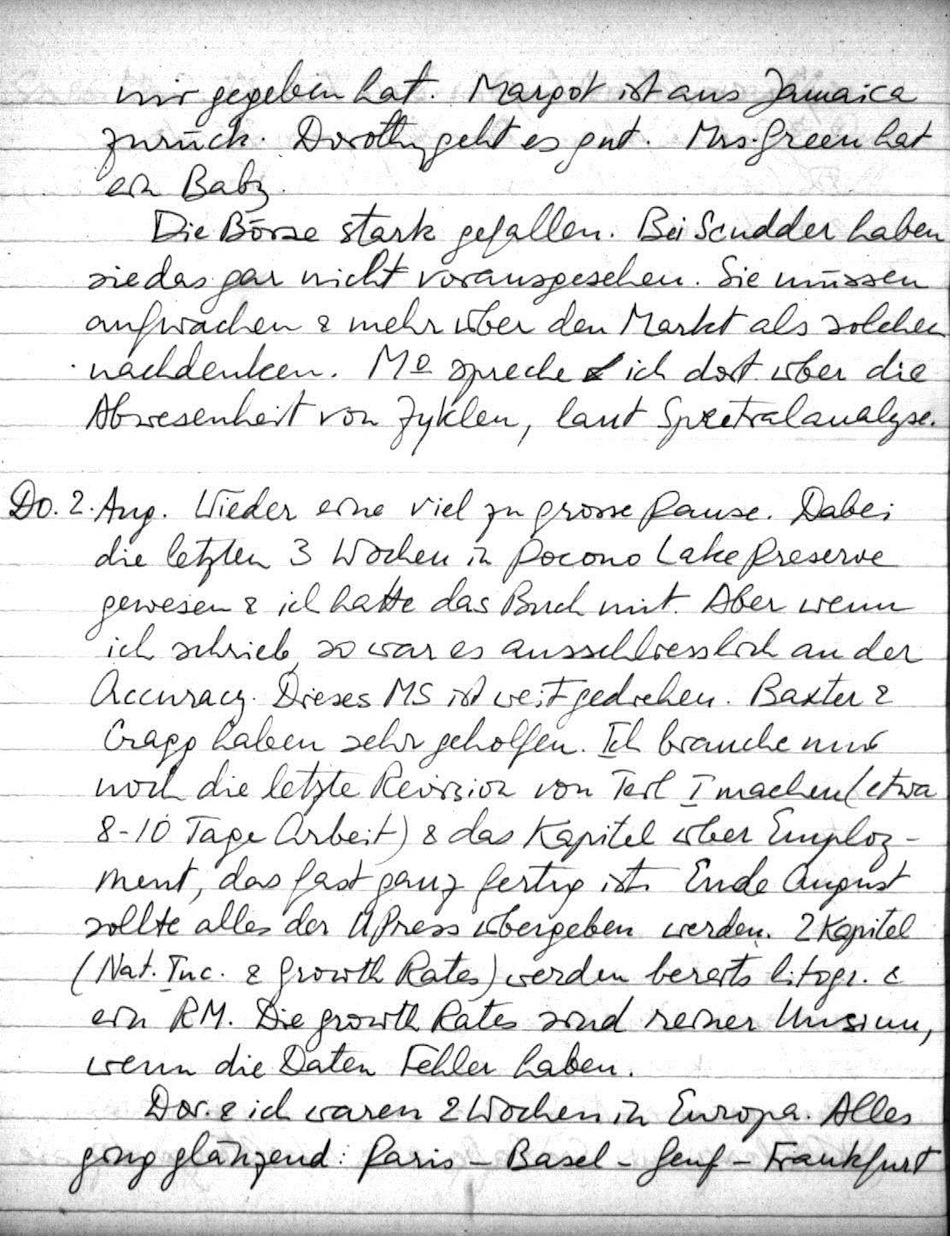 mir gegeben hat. Margot ist aus Jamaica
zurück. Dorothy geht es gut. Mrs. Green hat
ein Baby.
Die Börse stark gefallen. Bei Scudder haben
sie das gar nicht vorausgesehen. Sie müssen
aufwachen & mehr über den Markt als solchen
nachdenken. Mo spreche ich dort über die
Abwesenheit von Zyklen, laut Spectralanalyse.
Do. 2. Aug. Wieder eine viel zu grosse Pause. Dabei
die letzten 3 Wochen in Pocono Lake Preserve
gewesen & ich hatte das Buch mit. Aber wenn
ich schrieb, so war es ausschliesslich an der
Accuracy. Dieses MS ist weit gediehen. Baxter &
Cragg haben sehr geholfen. Ich brauche nur
noch die letzte Revision von Teil I machen (etwa
8-10 Tage Arbeit) & das Kapitel über Employ-
ment, das fast ganz fertig ist. Ende August
sollte alles der UPress übergeben werden. 2 Kapitel
(Nat. Inc. & Growth Rates) werden bereits litogr. &
ein RM. Die Growth Rates sind reiner Unsinn,
wenn die Daten Fehler haben.
Dor. & ich waren 2 Wochen in Europa. Alles
ging glänzend: Paris – Basel – Genf – Frankfurt